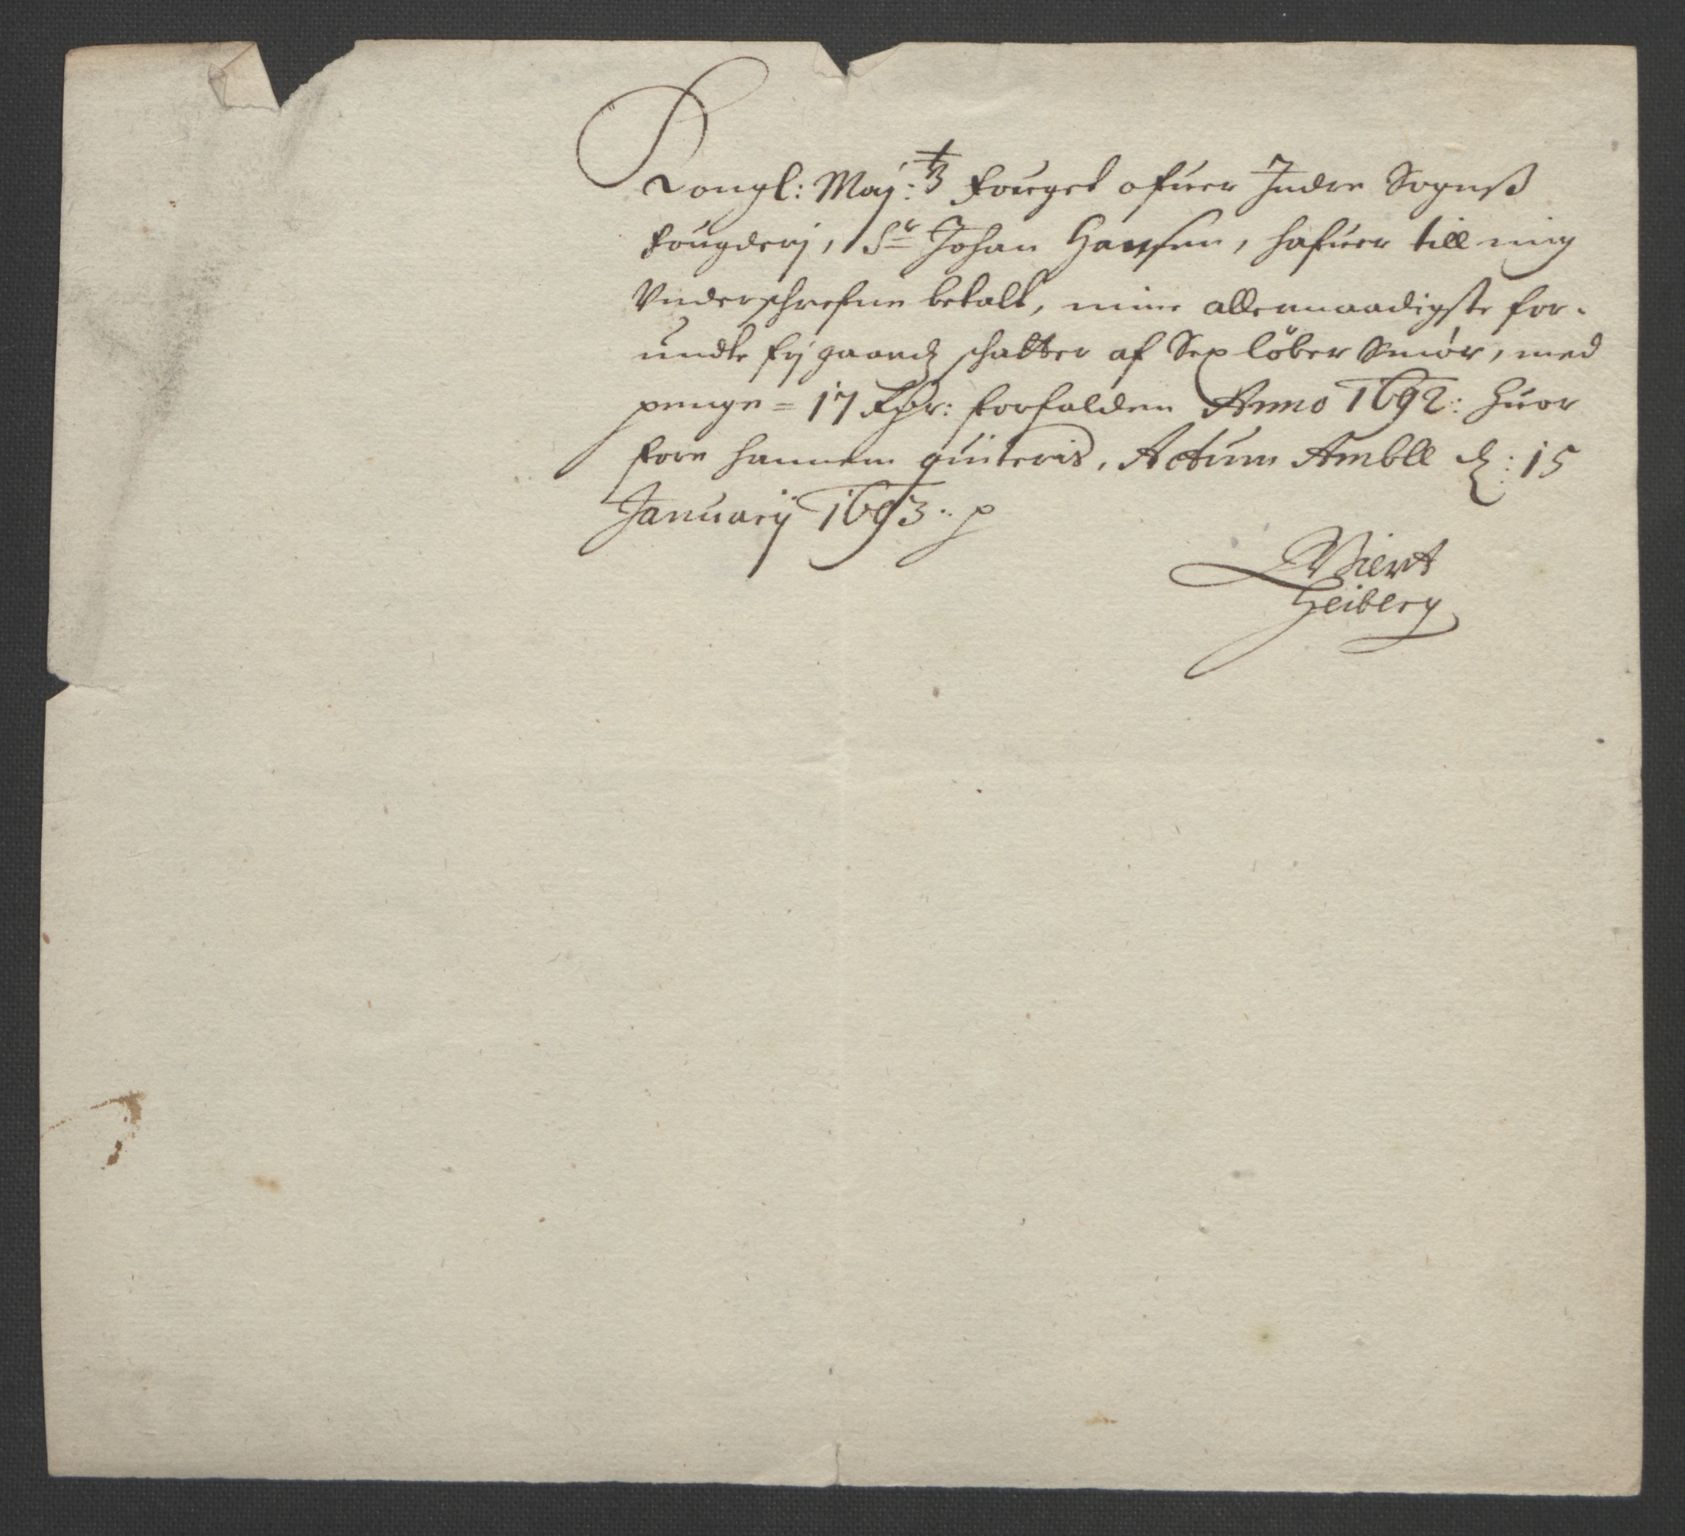 Kongl: Maj:ts Fouget ofuer Indre Sognß
Fougderj, Sr Johan Hansen, hafuer till mig
Vnderschrefne betalt, mine allernaadigste for-
undte frj gaards schatter af Sex løber Smør, med
penge = 17 Rdr: forfalden Anno 1692: Huor
fore hannem quiteris, Actum Ambll d: 15
Januarij 1693: p
Wiert
Heiberg